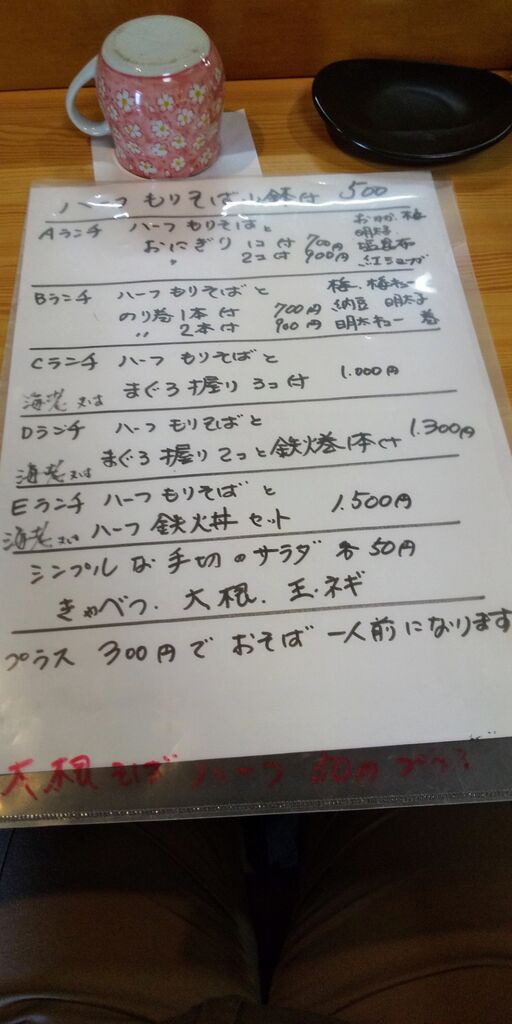 ハーフ もりそば 小鉢付 500
Aランチ ハーフ もりそばと おかか. 梅
おにぎり 1コ 付 700円 明太子
〃 2コ 付 900円 塩昆布
紅ショウガ
Bランチ ハーフ もりそばと 梅. 梅キュー
のり巻 1本 付 700円 納豆 明太子
〃 2本 付 900円 明太キュー 巻
Cランチ ハーフ もりそばと
海老 又は まぐろ 握り 3コ 付 1.000円
Dランチ ハーフ もりそばと
海老 又は まぐろ 握り 2コと 鉄火巻 1本付 1.300円
Eランチ ハーフ もりそば と
海老 又は ハーフ 鉄火丼 セット 1.500円
シンプル な 手切 の サラダ 各 50円
きゃべつ. 大根. 玉ネギ
プラス 300円 で おそば 一人前 になります
大根そば ハーフ 50円